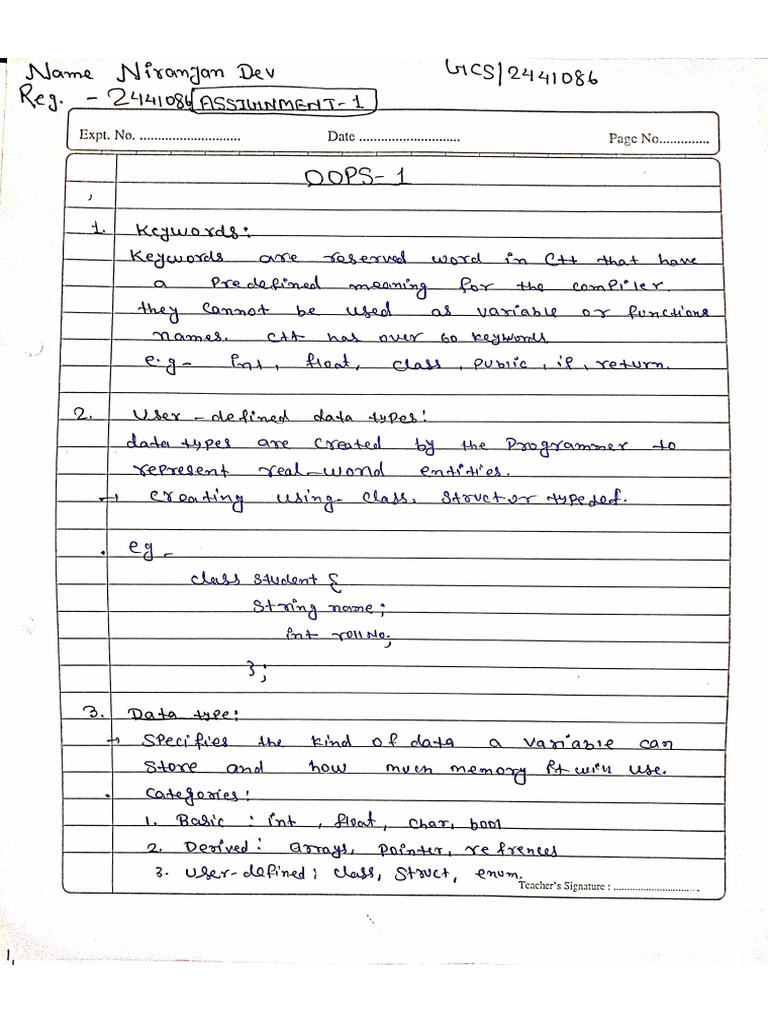 Name Niranjan Dev GCS/2441086
Reg. - 2441086 ASSIGNMENT-1
Expt. No. ............................ Date ............................ Page No..............
OOPS-1
1. Keywords:
Keywords are reserved word in C++ that have
a Predefined meaning for the compiler.
they cannot be used as variable or functions
names. C++ has over 60 keywords.
e.g- int, float, class, public, if, return.
2. User-defined data types:
data types are created by the Programmer to
represent real-world entities.
→ creating using- class, struct or typedef.
. eg -
class student {
String name;
int rollNo;
};
3. Data type:
→ Specifies the kind of data a variable can
store and how much memory it will use.
. Categories:
1. Basic : int , float, char, bool
2. Derived : arrays, pointer, refrences
3. user-defined : class, struct, enum.
Teacher's Signature : ..............................